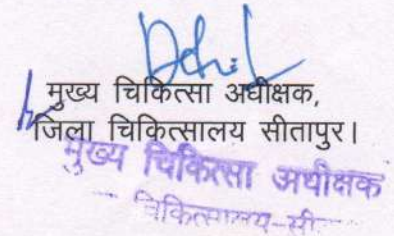 मुख्य चिकित्सा अधीक्षक,
जिला चिकित्सालय सीतापुर।
मुख्य चिकित्सा अधीक्षक
चिकित्सालय-सी